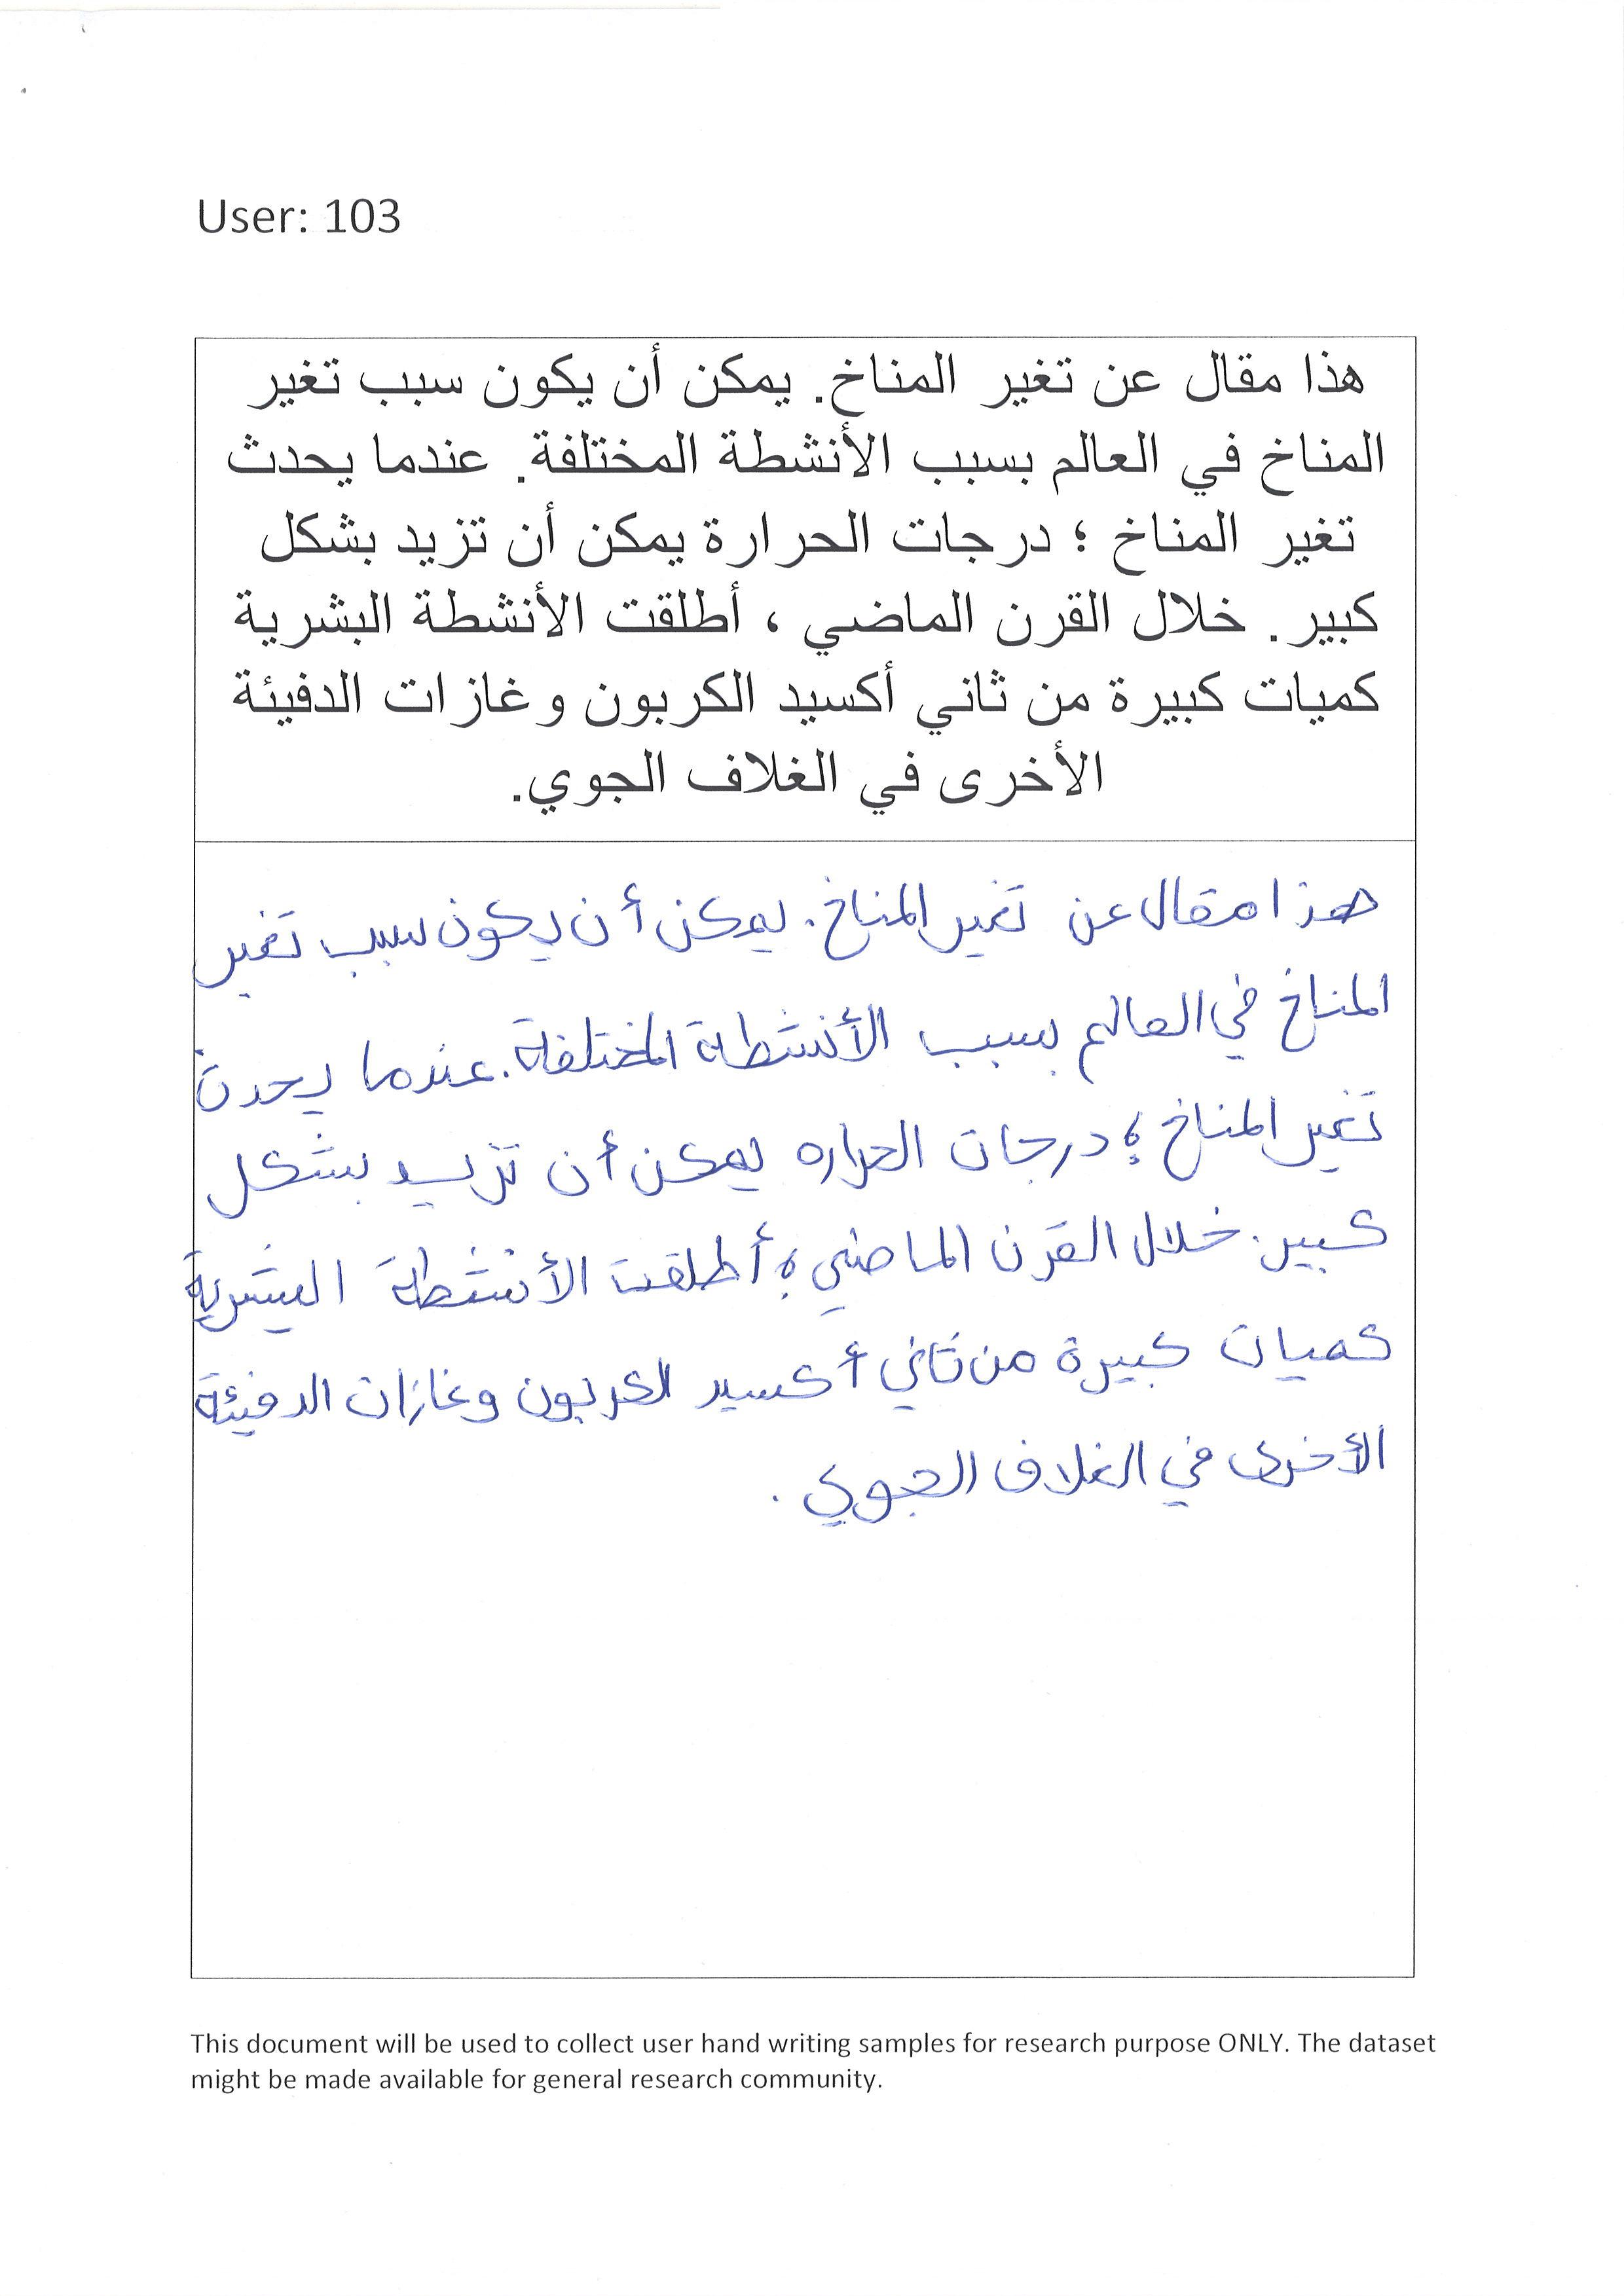 User: 103
هذا مقال عن تغير المناخ. يمكن أن يكون سبب تغير
المناخ في العالم بسبب الأنشطة المختلفة. عندما يحدث
تغير المناخ ؛ درجات الحرارة يمكن أن تزيد بشكل
كبير. خلال القرن الماضي ، أطلقت الأنشطة البشرية
كميات كبيرة من ثاني أكسيد الكربون وغازات الدفيئة
الأخرى في الغلاف الجوي.
هذا مقال عن تغير المناخ. يمكن أن يكون سبب تغير
المناخ في العالم بسبب الأنشطة المختلفة. عندما يحدث
تغير المناخ ؛ درجات الحراره يمكن أن تزيد بشكل
كبير. خلال القرن الماضي ؛ أطلقت الأنشطة البشرية
كميات كبيرة من ثاني أكسيد الكربون وغازات الدفيئة
الأخرى في الغلاف الجوي .
This document will be used to collect user hand writing samples for research purpose ONLY. The dataset
might be made available for general research community.